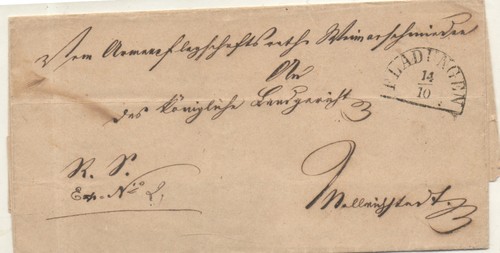 Vom Armenpflegschaftsrathe Weimarschmieden
An
das königliche Landgericht
FLADUNGEN
14
10
R. S.
Exp. No
Mellrichstadt